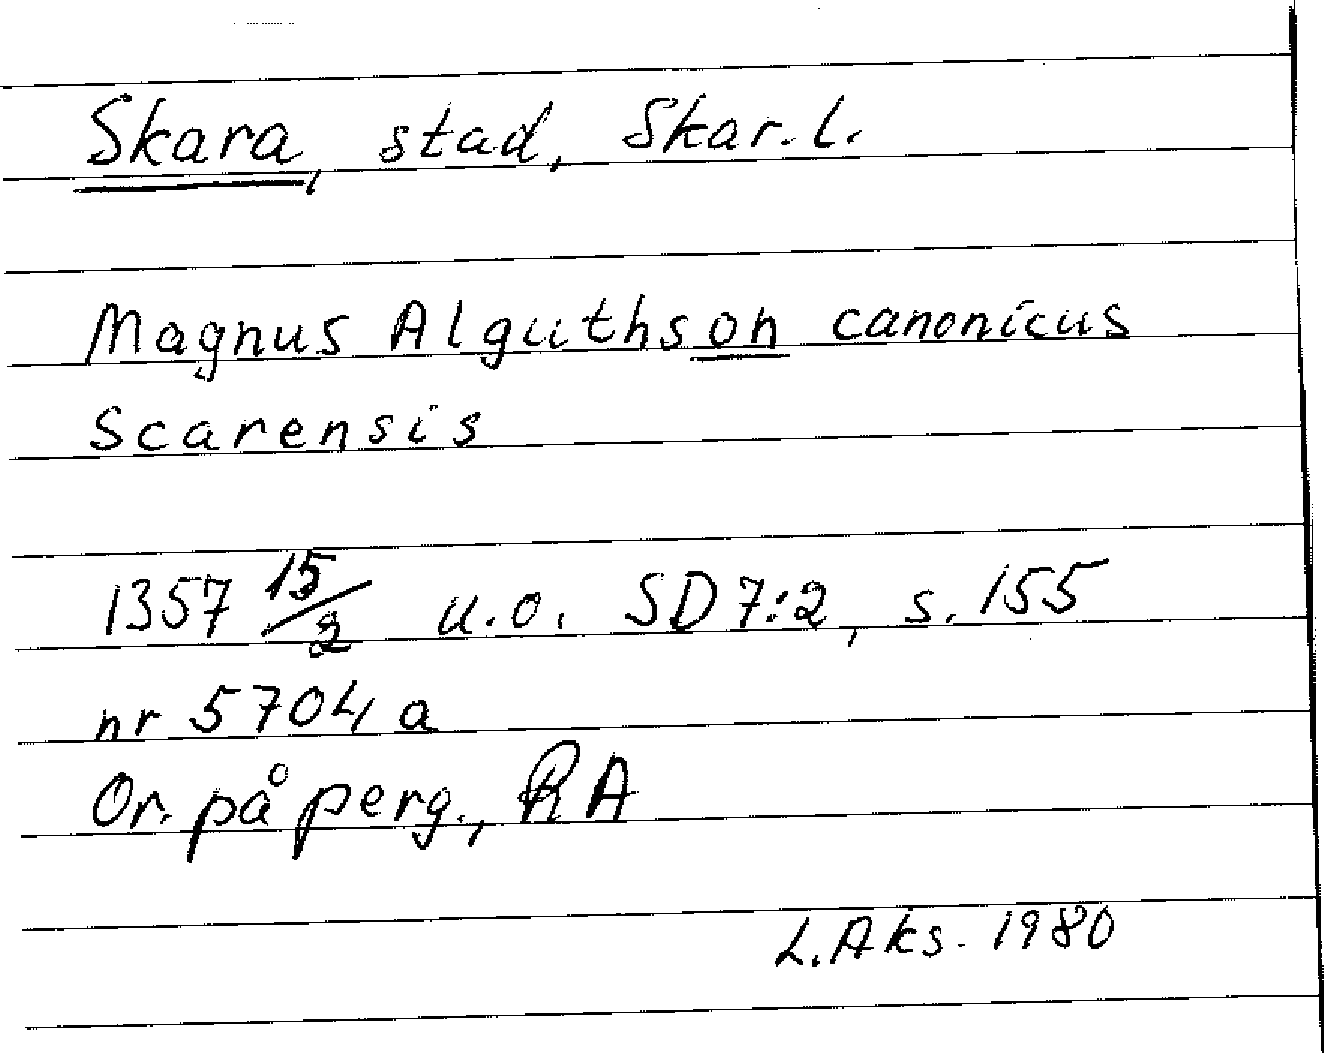 Skara, stad, Skar. l.
Magnus Alguthson canonicus
Scarensis
1357 15/2 u.o. SD 7:2, s. 155
nr 5704 a
Or. på perg., RA
L. Aks. 1980